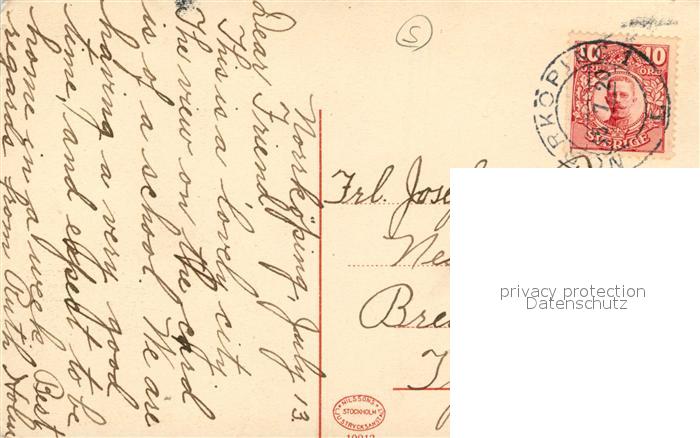 Norrköping, July 13.
Dear Friend
This is a lovely city
The view on the card
is of a school. We are
having a very good
time, and expect to be
home in a week. Best
regards from Ruth Holm
5
10 10
ÖRE ÖRE
SVERIGE
NORRKÖPING 1
7 20
Frl. Jose
Ne
Bre
privacy protection
Datenschutz
NILSSONS
STOCKHOLM
LJUSTRYCKSANST
10913